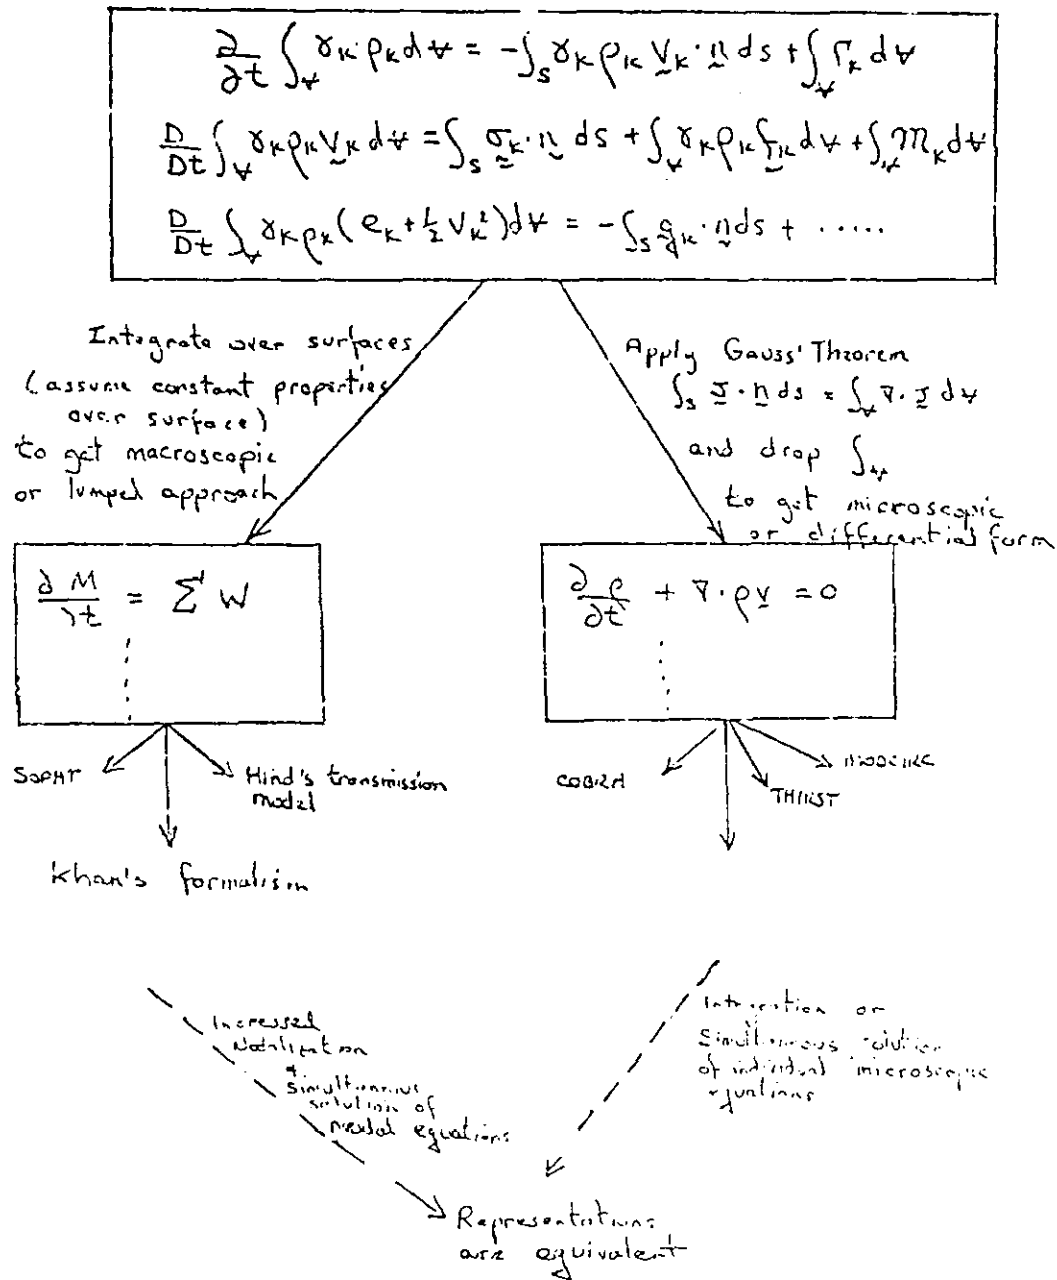 ∂/∂t ∫_V γ_k ρ_k dV = -∫_S γ_k ρ_k v_k · n ds + ∫_V Γ_k dV
D/Dt ∫_V γ_k ρ_k v_k dV = ∫_S σ_k · n ds + ∫_V γ_k ρ_k f_k dV + ∫_V M_k dV
D/Dt ∫_V γ_k ρ_k (e_k + 1/2 v_k²) dV = -∫_S q_k · n ds + .....
Integrate over surfaces
(assume constant properties
over surface)
to get macroscopic
or lumped approach
Apply Gauss' Theorem
∫_S J · n ds = ∫_V ∇ · J dV
and drop ∫_V
to get microscopic
or differential form
∂M/∂t = Σ W
∂ρ/∂t + ∇ · ρv = 0
SOPHT
Hind's transmission
model
Khan's formalism
COBRA
THIRST
Increased
Nodalization
&
Simultaneous
solution of
nodal equations
Integration or
Simultaneous solution
of individual microscopic
equations
Representations
are equivalent